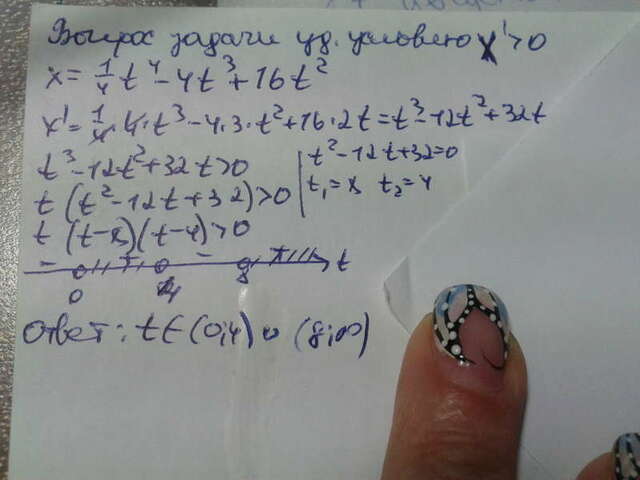 Вопрос задачи уд. условию x' > 0
x = 1/4 t⁴ - 4t³ + 16t²
x' = 1/4 · 4 · t³ - 4 · 3 · t² + 16 · 2t = t³ - 12t² + 32t
t³ - 12t² + 32t > 0 | t² - 12t + 32 = 0
t (t² - 12t + 32) > 0 | t₁ = 8 t₂ = 4
t (t-8)(t-4) > 0
- + - + t
0 4 8
Ответ: t ∈ (0;4) ∪ (8;∞)